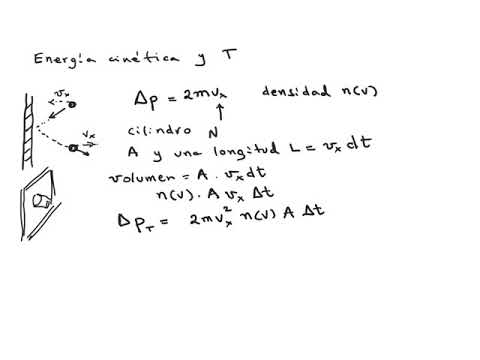 Energía cinética y T
vx
Δp = 2mvx densidad n(v)
vx
cilindro N
A y una longitud L = vx dt
volumen = A · vx dt
n(v) · A vx Δt
Δp_T = 2mvx² n(v) A Δt